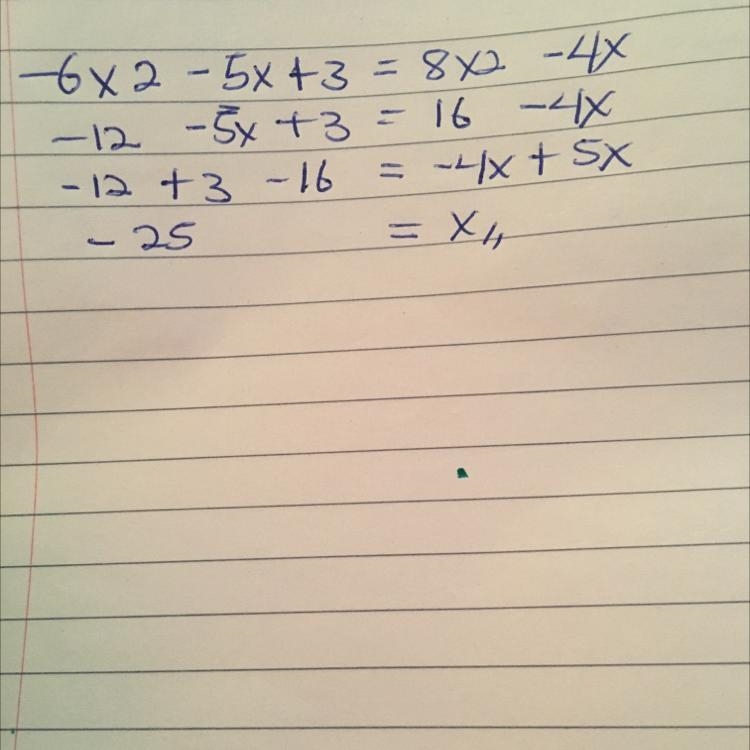 -6x2 -5x+3 = 8x2 -4x
-12 -5x +3 = 16 -4x
-12 +3 -16 = -4x + 5x
-25 = x,,